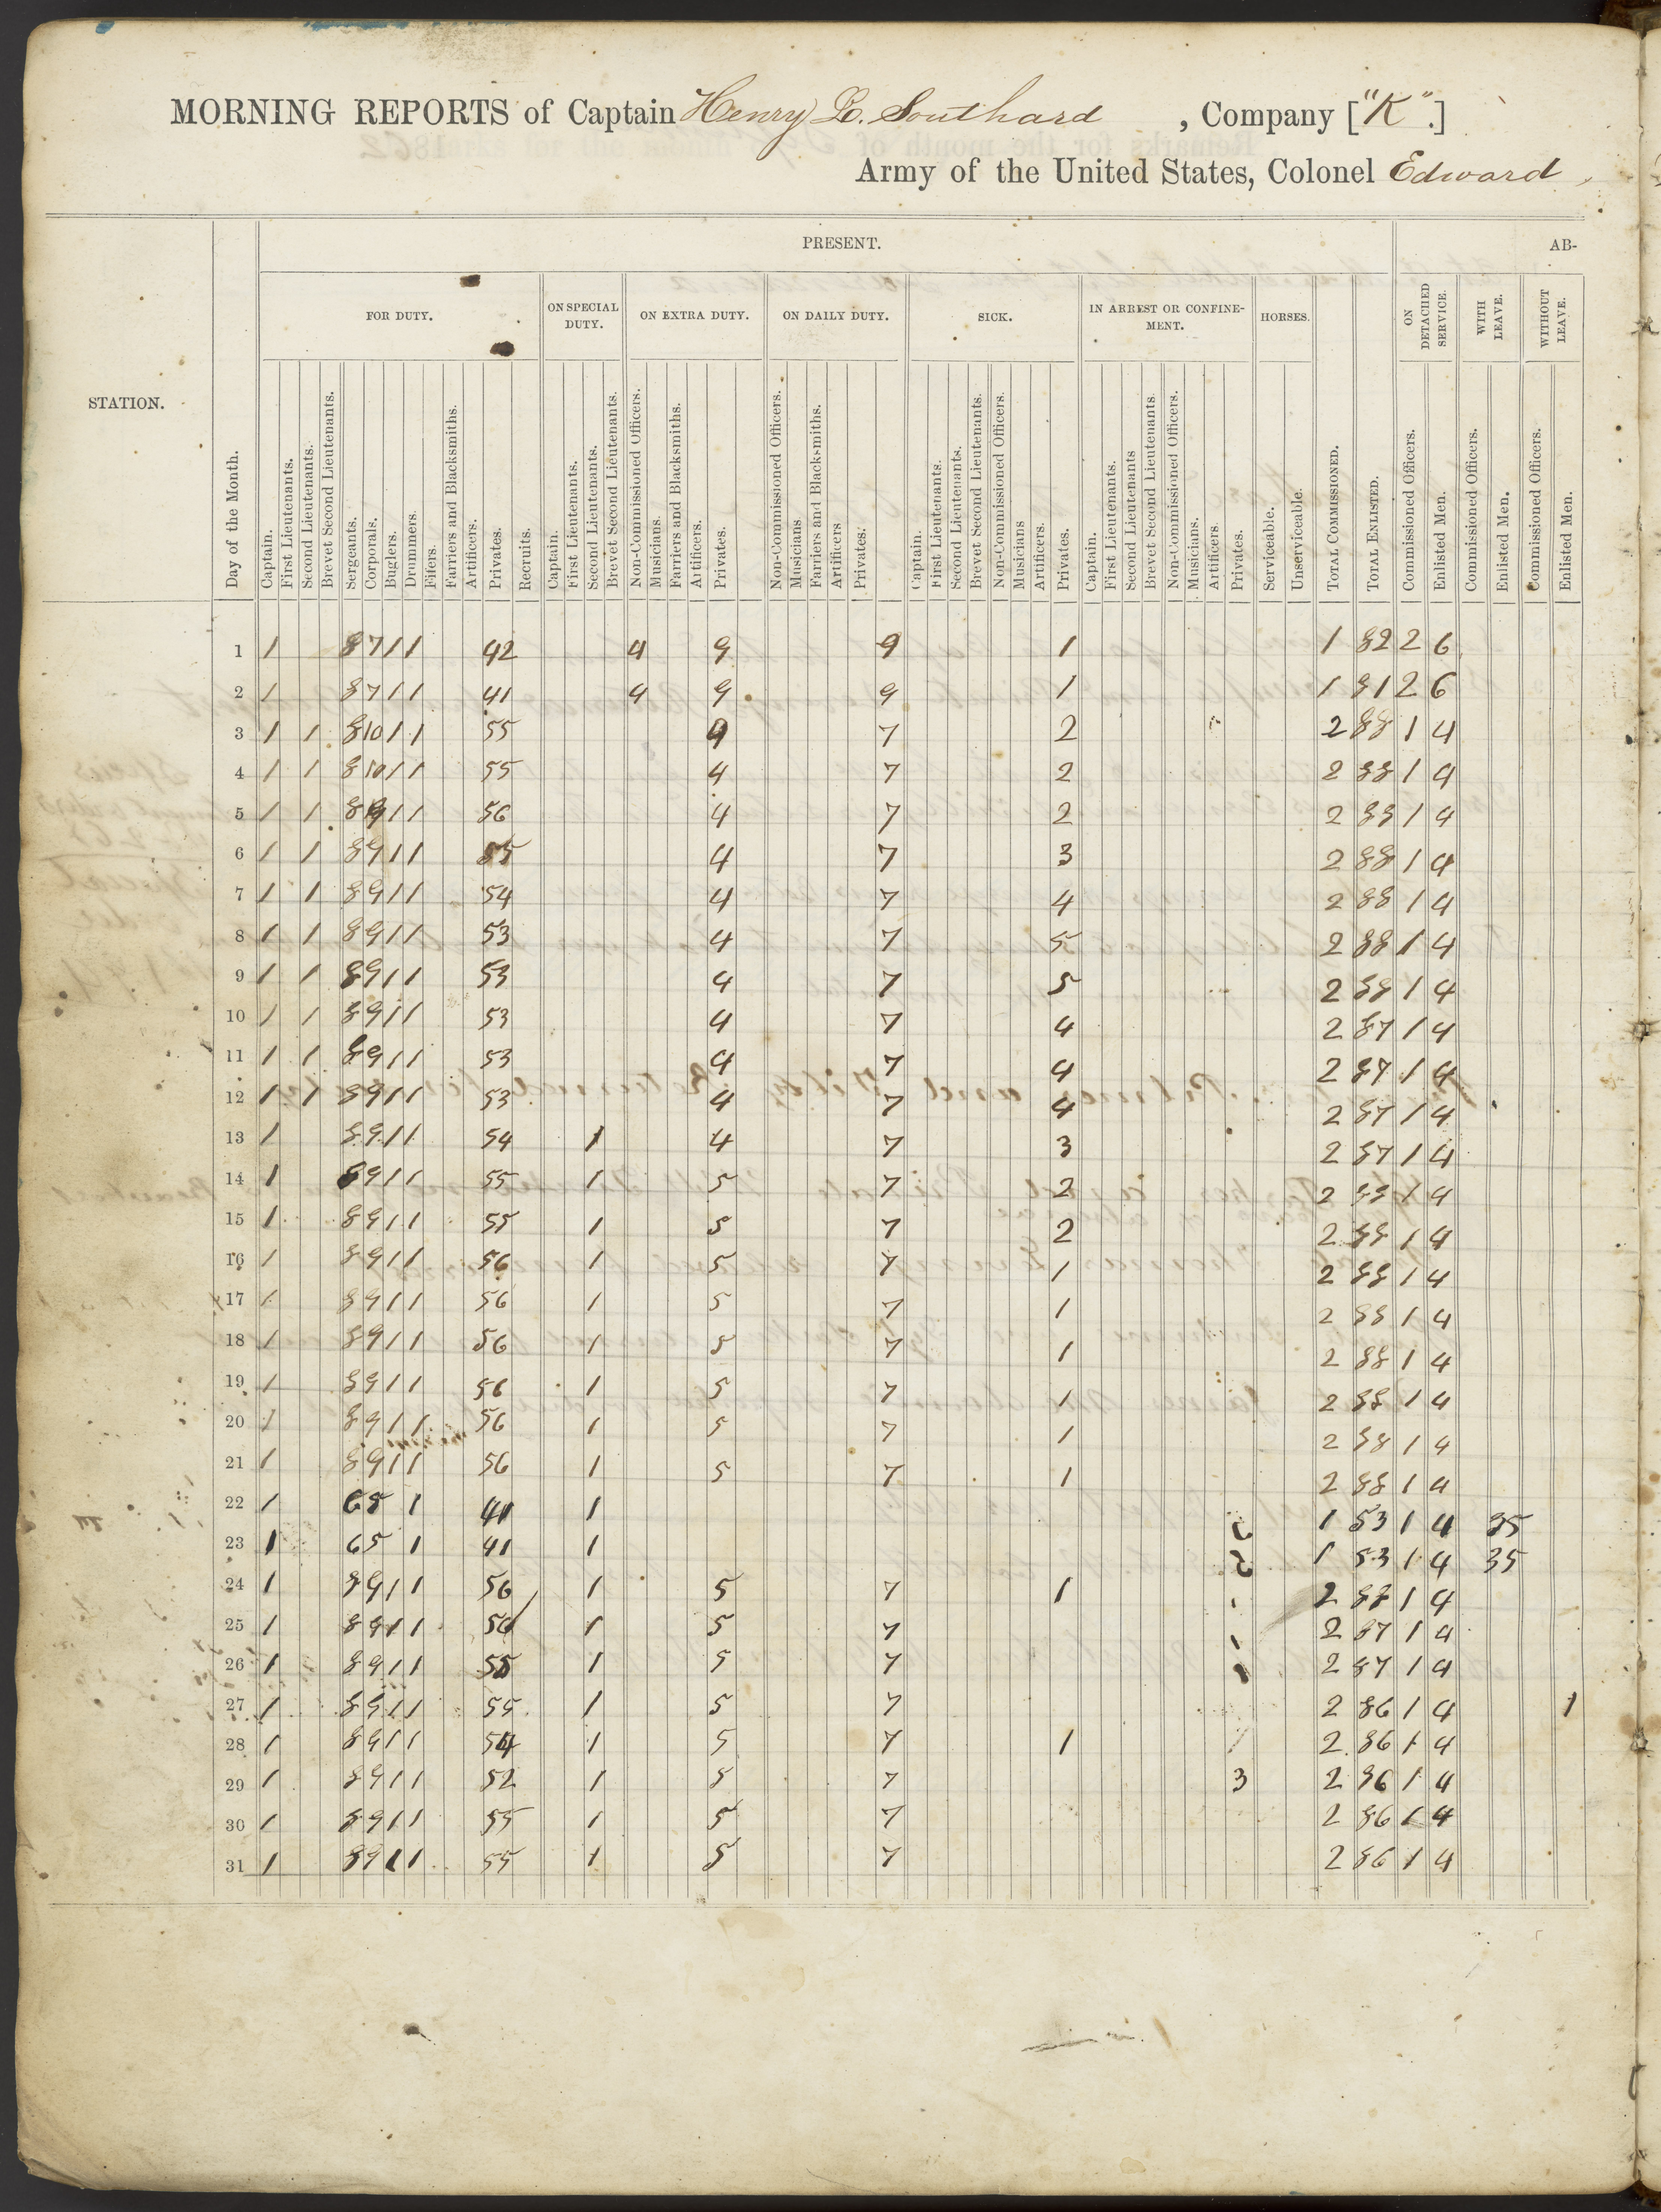 MORNING REPORTS of Captain Henry L. Southard , Company ["K".]
Army of the United States, Colonel Edward
STATION.
Day of the Month.
PRESENT.
AB-
FOR DUTY.
ON SPECIAL DUTY.
ON EXTRA DUTY.
ON DAILY DUTY.
SICK.
IN ARREST OR CONFINE-
MENT.
HORSES.
ON DETACHED SERVICE.
WITH LEAVE.
WITHOUT LEAVE.
Captain. First Lieutenants. Second Lieutenants. Brevet Second Lieutenants. Sergeants. Corporals. Buglers. Drummers. Fifers. Farriers and Blacksmiths. Artificers. Privates. Recruits.
Captain. First Lieutenants. Second Lieutenants. Brevet Second Lieutenants.
Non-Commissioned Officers. Musicians. Farriers and Blacksmiths. Artificers. Privates.
Non-Commissioned Officers. Musicians Farriers and Blacksmiths. Artificers Privates.
Captain. First Lieutenants. Second Lieutenants. Brevet Second Lieutenants. Non-Commissioned Officers. Musicians Artificers. Privates.
Captain. First Lieutenants. Second Lieutenants Brevet Second Lieutenants. Non-Commissioned Officers. Musicians. Artificers. Privates.
Serviceable. Unserviceable.
TOTAL COMMISSIONED. TOTAL ENLISTED.
Commissioned Officers. Enlisted Men. Commissioned Officers. Enlisted Men. Commissioned Officers. Enlisted Men.
1 1 8 7 1 1 42 4 9 9 1 1 82 2 6
2 1 8 7 1 1 41 4 9 9 1 1 81 2 6
3 1 1 8 10 1 1 55 4 7 2 2 88 1 4
4 1 1 8 10 1 1 55 4 7 2 2 88 1 4
5 1 1 8 9 1 1 56 4 7 2 2 88 1 4
6 1 1 8 9 1 1 55 4 7 3 2 88 1 4
7 1 1 8 9 1 1 54 4 7 4 2 88 1 4
8 1 1 8 9 1 1 53 4 7 5 2 88 1 4
9 1 1 8 9 1 1 53 4 7 5 2 88 1 4
10 1 1 8 9 1 1 53 4 7 4 2 87 1 4
11 1 1 8 9 1 1 53 4 7 4 2 87 1 4
12 1 1 8 9 1 1 53 4 7 4 2 87 1 4
13 1 8 9 1 1 54 1 4 7 3 2 87 1 4
14 1 8 9 1 1 55 1 5 7 2 2 88 1 4
15 1 8 9 1 1 55 1 5 7 2 2 88 1 4
16 1 8 9 1 1 56 1 5 7 1 2 88 1 4
17 1 8 9 1 1 56 1 5 7 1 2 88 1 4
18 1 8 9 1 1 56 1 5 7 1 2 88 1 4
19 1 8 9 1 1 56 1 5 7 1 2 88 1 4
20 1 8 9 1 1 56 1 5 7 1 2 88 1 4
21 1 8 9 1 1 56 1 5 7 1 2 88 1 4
22 1 6 5 1 41 1 1 53 1 4 35
23 1 6 5 1 41 1 1 53 1 4 35
24 1 8 9 1 1 56 1 5 7 1 2 88 1 4
25 1 8 9 1 1 56 1 5 7 1 2 87 1 4
26 1 8 9 1 1 55 1 5 7 1 2 87 1 4
27 1 8 9 1 1 55 1 5 7 2 86 1 4 1
28 1 8 9 1 1 54 1 5 7 1 1 2 86 1 4
29 1 8 9 1 1 52 1 5 7 3 2 86 1 4
30 1 8 9 1 1 55 1 5 7 2 86 1 4
31 1 8 9 1 1 55 1 5 7 2 86 1 4